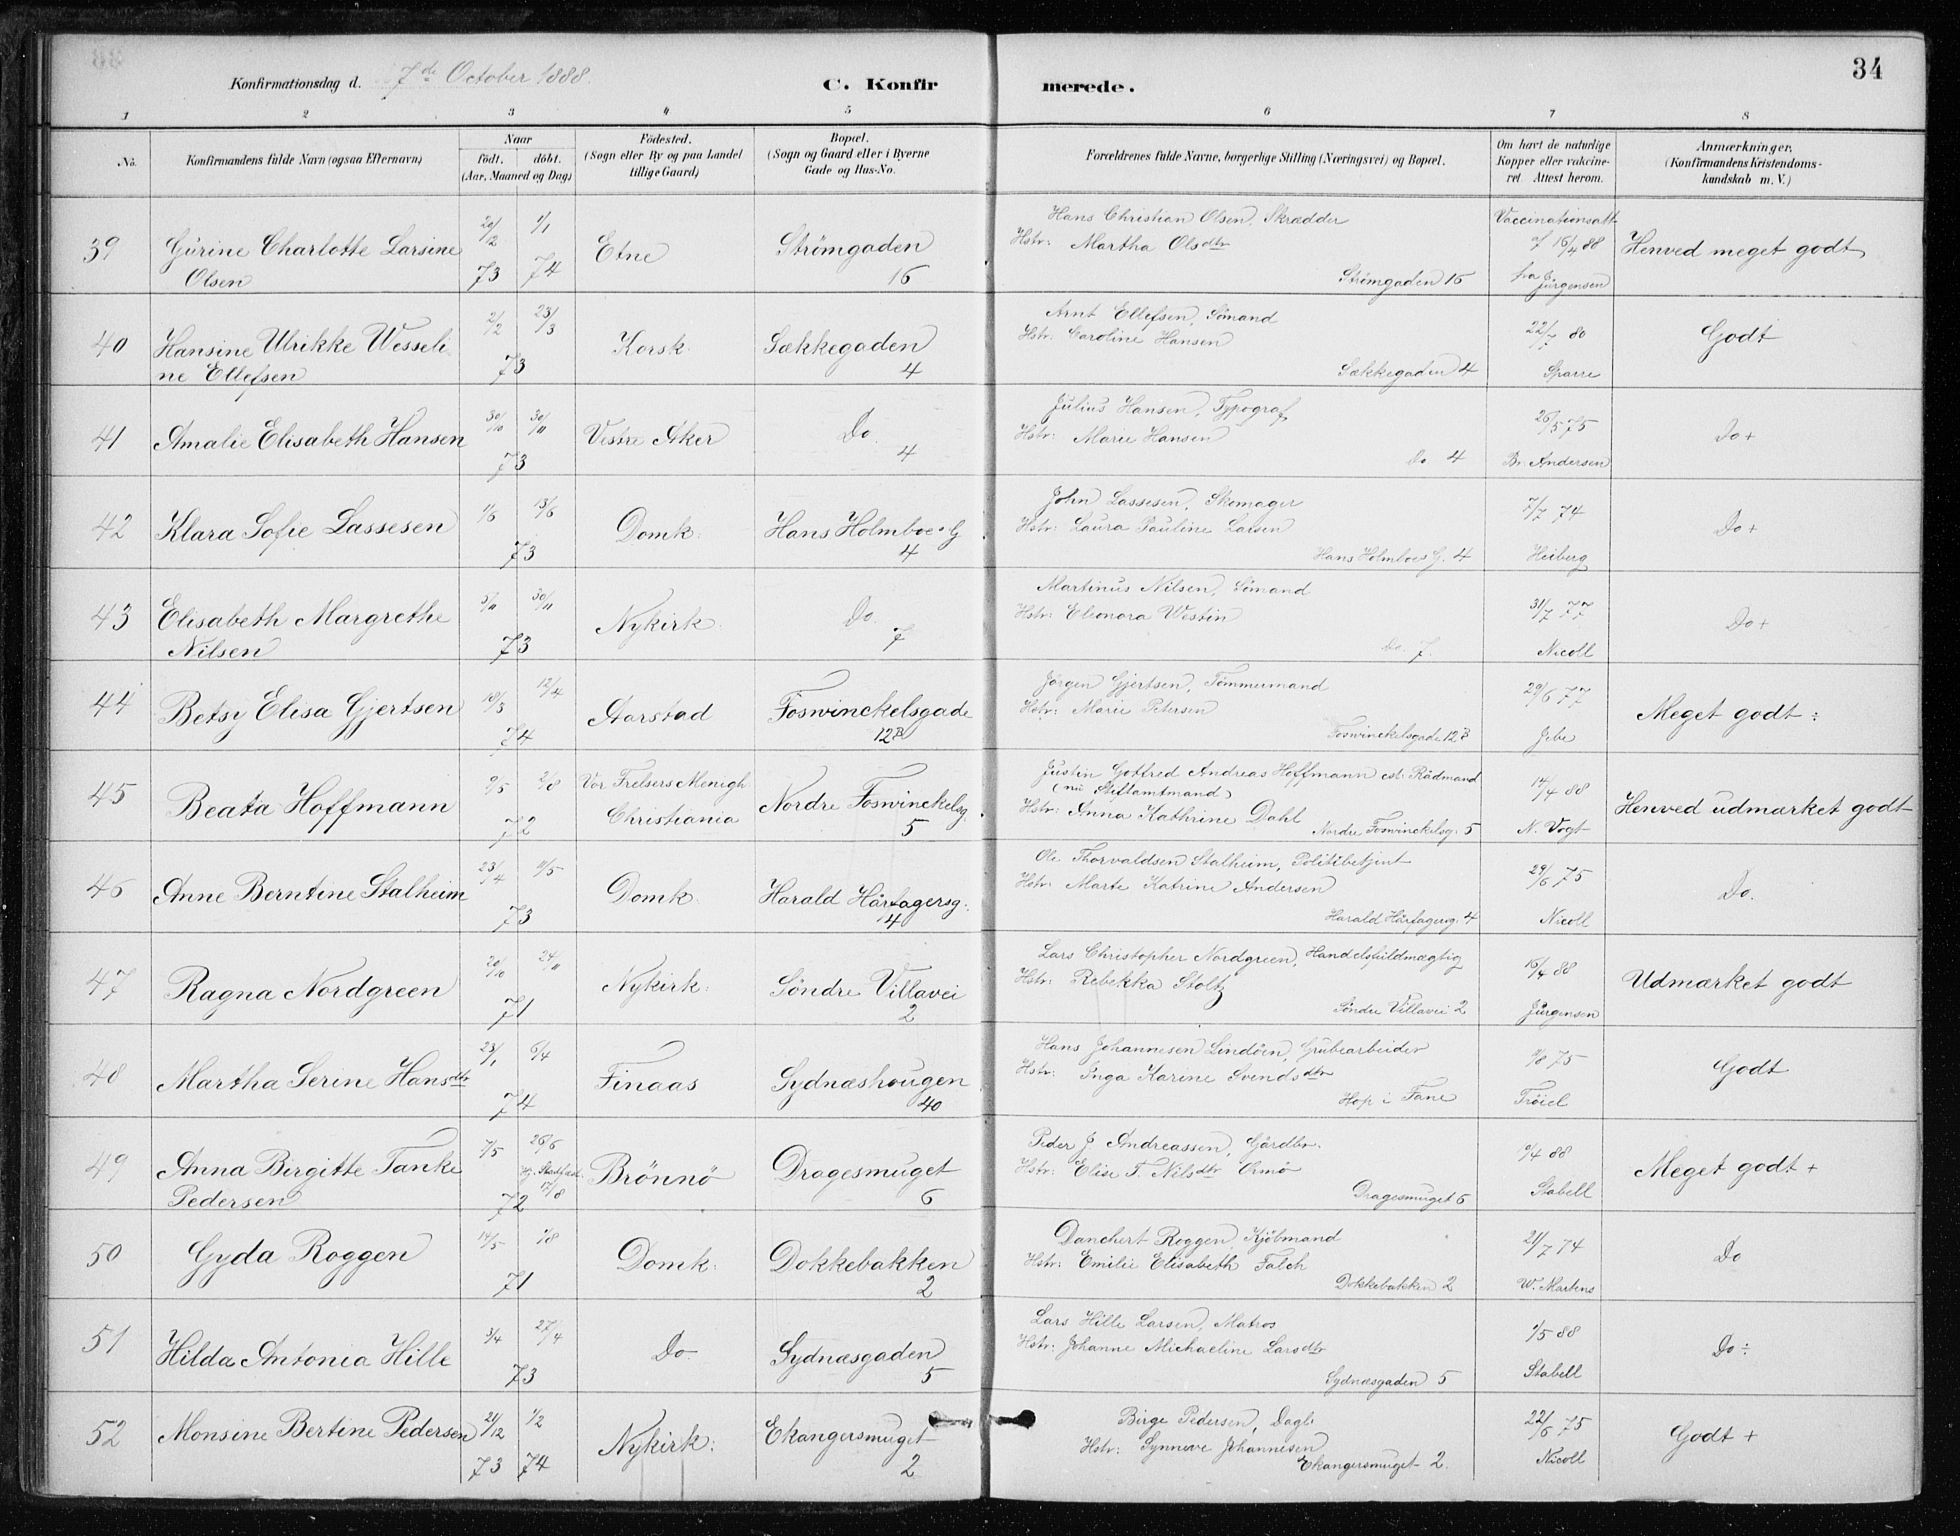 34
Konfirmationsdag d. 7de October 1888.
C. Konfirmerede.
1 2 3 4 5 6 7 8
No. Konfirmandens fulde Navn (ogsaa Efternavn) Naar født. døbt. (Aar, Maaned og Dag) Fødested. (Sogn eller By og paa Landet tillige Gaard) Bopæl. (Sogn og Gaard eller i Byerne Gade og Hus-No. Forældrenes fulde Navne, borgerlige Stilling (Næringsvei) og Bopæl. Om havt de naturlige Kopper eller vakcineret. Attest herom. Anmærkninger. (Konfirmandens Kristendomskundskab m. V.)
39 Gurine Charlotte Larsine Olsen 20/12 73 1/1 74 Etne Strømgaden 16 Hans Christian Olsen, Skrædder Hstr: Martha Olsdtr Strømgaden 16 Vaccinationsatt. af 16/4 88 fra Jürgensen Henved meget godt
40 Hansine Ulrikke Wesseline Ellefsen 2/2 23/3 73 Korsk. Sækkegaden 4 Arnt Ellefsen, Sømand Hstr: Caroline Hansen Sækkegaden 4 22/7 80 Sparre Godt
41 Amalie Elisabeth Hansen 30/10 30/11 73 Vestre Aker Do. 4 Julius Hansen, Typograf Hstr: Marie Hansen Do 4 26/5 75 Br. Andersen Do +
42 Klara Sofie Lassesen 1/6 13/6 73 Domk. Hans Holmboes G 4 John Lassesen, Skomager Hstr: Laura Pauline Larsen Hans Holmboes G. 4 7/7 74 Heiberg Do +
43 Elisabeth Margrethe Nilsen 5/11 30/11 73 Nykirk. Do. 7 Martinus Nilsen, Sømand Hstr: Eleonora Westin Do. 7. 31/7 77 Nicoll Do +
44 Betsy Elisa Gjertsen 18/3 12/4 74 Aarstad Foswinckelsgade 12B Jørgen Gjertsen, Tømmermand Hstr: Marie Petersen Foswinckelsgade 12B 29/6 77 Jebe Meget godt ÷
45 Beata Hoffmann 9/5 2/8 72 Vor Frelsers Menigh. Christiania Nordre Foswinckelsg. 5 Justin Gotfred Andreas Hoffmann, cst. Rådmand (nu Stiftamtmand) Hstr: Anna Kathrine Dahl Nordre Foswinckelsg. 5 14/4 88 N. Vogt Henved udmærket godt
46 Anne Berntine Stalheim 23/4 11/5 73 Domk. Harald Hårfagersg. 4 Ole Thorvaldsen Stalheim, Politibetjent Hstr: Marte Katrine Andersen Harald Hårfagersg. 4 29/6 75 Nicoll Do.
47 Ragna Nordgreen 20/10 24/11 71 Nykirk: Søndre Villavei 2 Lars Christopher Nordgreen, Handelsfuldmægtig Hstr: Rebekka Stoltz Søndre Villavei 2 16/4 88 Jürgensen Udmærket godt
48 Martha Serine Hansdtr 23/1 6/4 74 Finaas Sydnæshougen 40 Hans Johannesen Lindøen, Grubearbeider Hstr: Inga Karine Svendsdtr Hop i Fane 9/8 75 Trøiel Godt
49 Anna Birgitte Tanke Pedersen 7/5 26/6 Stadfæst. 17/8 72 Brønnø Dragesmuget 6 Peder J Andreassen, Gårdbr. Hstr: Elise T. Nilsdtr Ormø Dragesmuget 6 9/4 88 Stabell Meget godt +
50 Gyda Roggen 14/5 1/8 71 Domk: Dokkebakken 2 Danchert Roggen, Kjøbmand Hstr: Emilie Elisabeth Falch Dokkebakken 2 21/7 74 W. Martens Do
51 Hilda Antonia Hille 3/4 27/4 73 Do Sydnæsgaden 5 Lars Hille Larsen, Matros Hstr: Johanne Michaeline Larsdtr Sydnæsgaden 5 1/5 88 Stabell Do ÷
52 Monsine Bertine Pedersen 21/12 73 1/2 74 Nykirk: Ekangersmuget 2 Birge Pedersen, Dagl. Hstr: Synneve Johannesen Ekangersmuget 2. 22/6 75 Nicoll Godt +